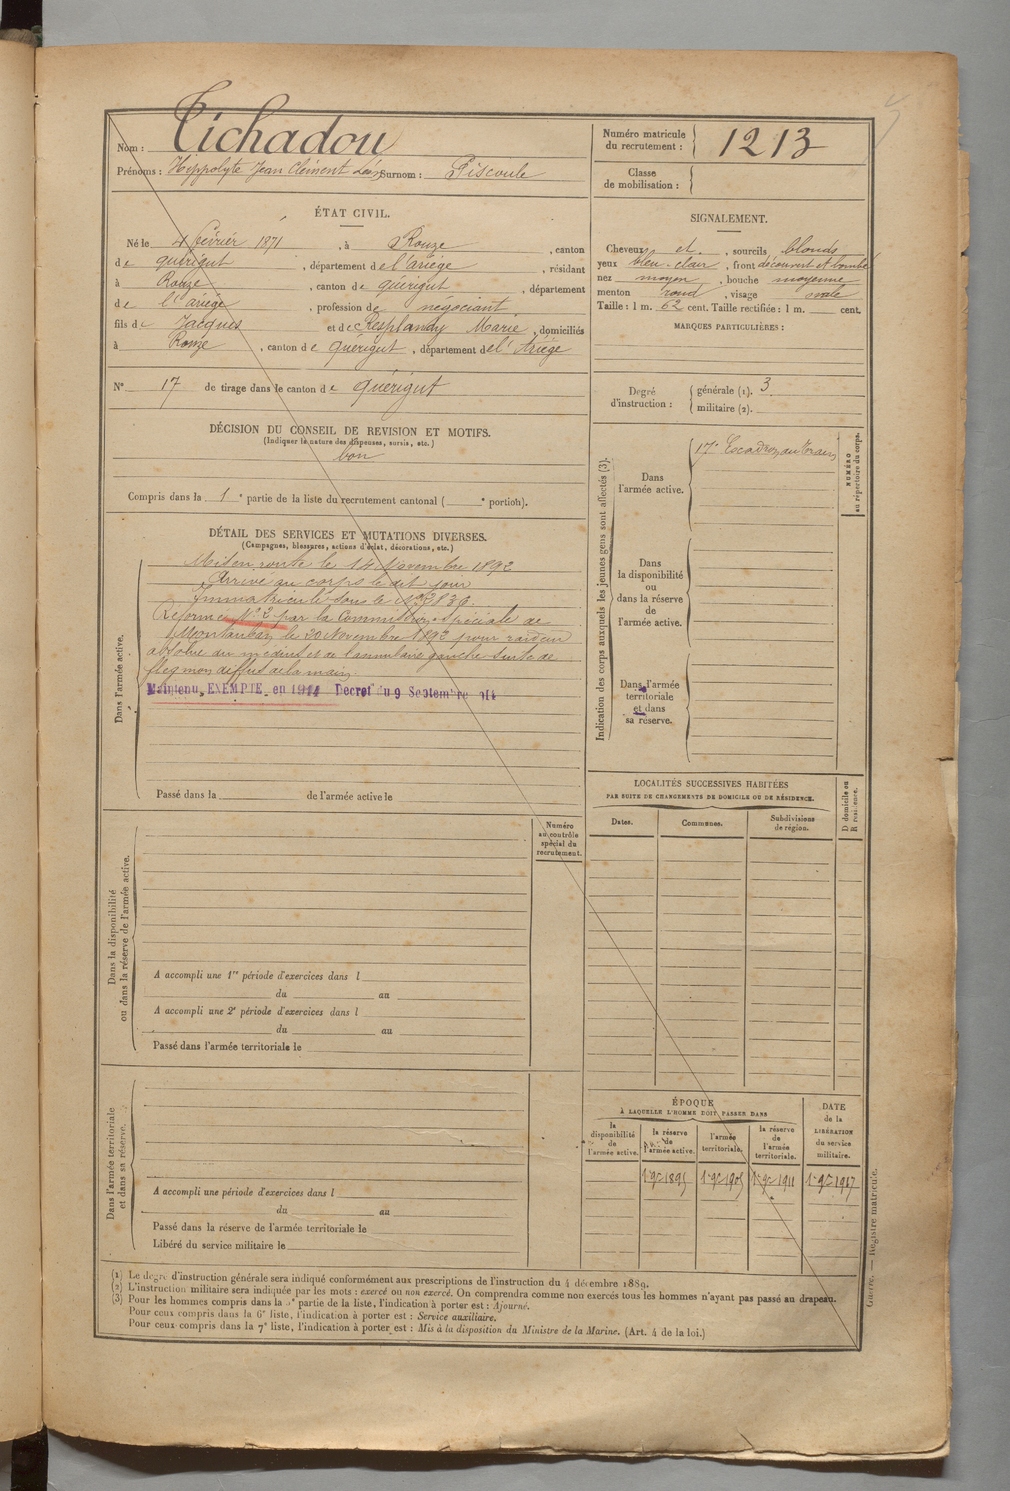 Nom : Tichadou
Prénoms : Hippolyte Jean Clément Léon Surnom : Piscoule
Numéro matricule du recrutement : 1213
Classe de mobilisation :
ÉTAT CIVIL.
Né le 4 février 1871, à Rouze, canton
de quérigut, département de l'ariège, résidant
à Rouze, canton de quérigut, département
de l'ariège, profession de négociant
fils de Jacques et de Resplandy Marie, domiciliés
à Rouze, canton de quérigut, département de l'Ariège
N° 17 de tirage dans le canton de quérigut
DÉCISION DU CONSEIL DE REVISION ET MOTIFS.
(Indiquer la nature des dispenses, sursis, etc.)
bon
Compris dans la 1e partie de la liste du recrutement cantonal ( e portion).
SIGNALEMENT.
Cheveux et, sourcils blonds
yeux bleu-clair, front découvert et bombé
nez moyen, bouche moyenne
menton rond, visage ovale
Taille : 1 m. 62 cent. Taille rectifiée : 1 m. cent.
MARQUES PARTICULIÈRES :
Degré d'instruction :
générale (1). 3
militaire (2).
DÉTAIL DES SERVICES ET MUTATIONS DIVERSES.
(Campagnes, blessures, actions d'éclat, décorations, etc.)
Dans l'armée active.
Mis en route le 14 Novembre 1892
Arrivé au corps le dit jour
Immatriculé sous le N° 3839.
Réformé N° 2 par la Commission spéciale de
Montauban le 20 Novembre 1892 pour raideur
absolue du médius et de l'annulaire gauche suite de
flegmon diffus de la main.
Maintenu EXEMPTÉ en 1914 Décret du 9 Septembre 1914
Passé dans la de l'armée active le
Indication des corps auxquels les jeunes gens sont affectés (3).
Dans l'armée active.
17e Escadron du train
NUMÉRO au répertoire du corps.
Dans la disponibilité ou dans la réserve de l'armée active.
Dans l'armée territoriale et dans sa réserve.
LOCALITÉS SUCCESSIVES HABITÉES
PAR SUITE DE CHANGEMENTS DE DOMICILE OU DE RÉSIDENCE.
Dates. Communes. Subdivisions de région.
D domicile ou R résidence.
Dans la disponibilité ou dans la réserve de l'armée active.
Numéro au contrôle spécial du recrutement.
A accompli une 1re période d'exercices dans l
du au
A accompli une 2e période d'exercices dans l
du au
Passé dans l'armée territoriale le
Dans l'armée territoriale et dans sa réserve.
A accompli une période d'exercices dans l
du au
Passé dans la réserve de l'armée territoriale le
Libéré du service militaire le
ÉPOQUE
À LAQUELLE L'HOMME DOIT PASSER DANS
la disponibilité de l'armée active.
la réserve de l'armée active.
l'armée territoriale.
la réserve de l'armée territoriale.
DATE de la LIBÉRATION du service militaire.
1er 9bre 1895 1er 9bre 1905 1er 9bre 1911 1er 9bre 1917
(1) Le degré d'instruction générale sera indiqué conformément aux prescriptions de l'instruction du 4 décembre 1889.
(2) L'instruction militaire sera indiquée par les mots : exercé ou non exercé. On comprendra comme non exercés tous les hommes n'ayant pas passé au drapeau.
(3) Pour les hommes compris dans la partie de la liste, l'indication à porter est : Ajourné.
Pour ceux compris dans la 6e liste, l'indication à porter est : Service auxiliaire.
Pour ceux compris dans la 7e liste, l'indication à porter est : Mis à la disposition du Ministre de la Marine. (Art. 4 de la loi.)
Guerre. — Registre matricule.